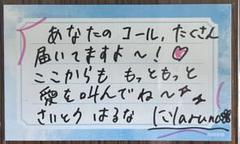 あなたのコール、たくさん
届いてますよ〜！♡
ここからも もっともっと
愛を叫んでね〜
さいとう はるな Haruna